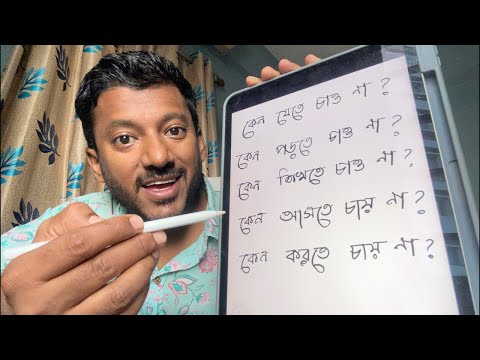 কেন যেতে চাও না ?
কেন পড়তে চাও না ?
কেন শিখতে চাও না ?
কেন আসতে চায় না ?
কেন করতে চায় না ?